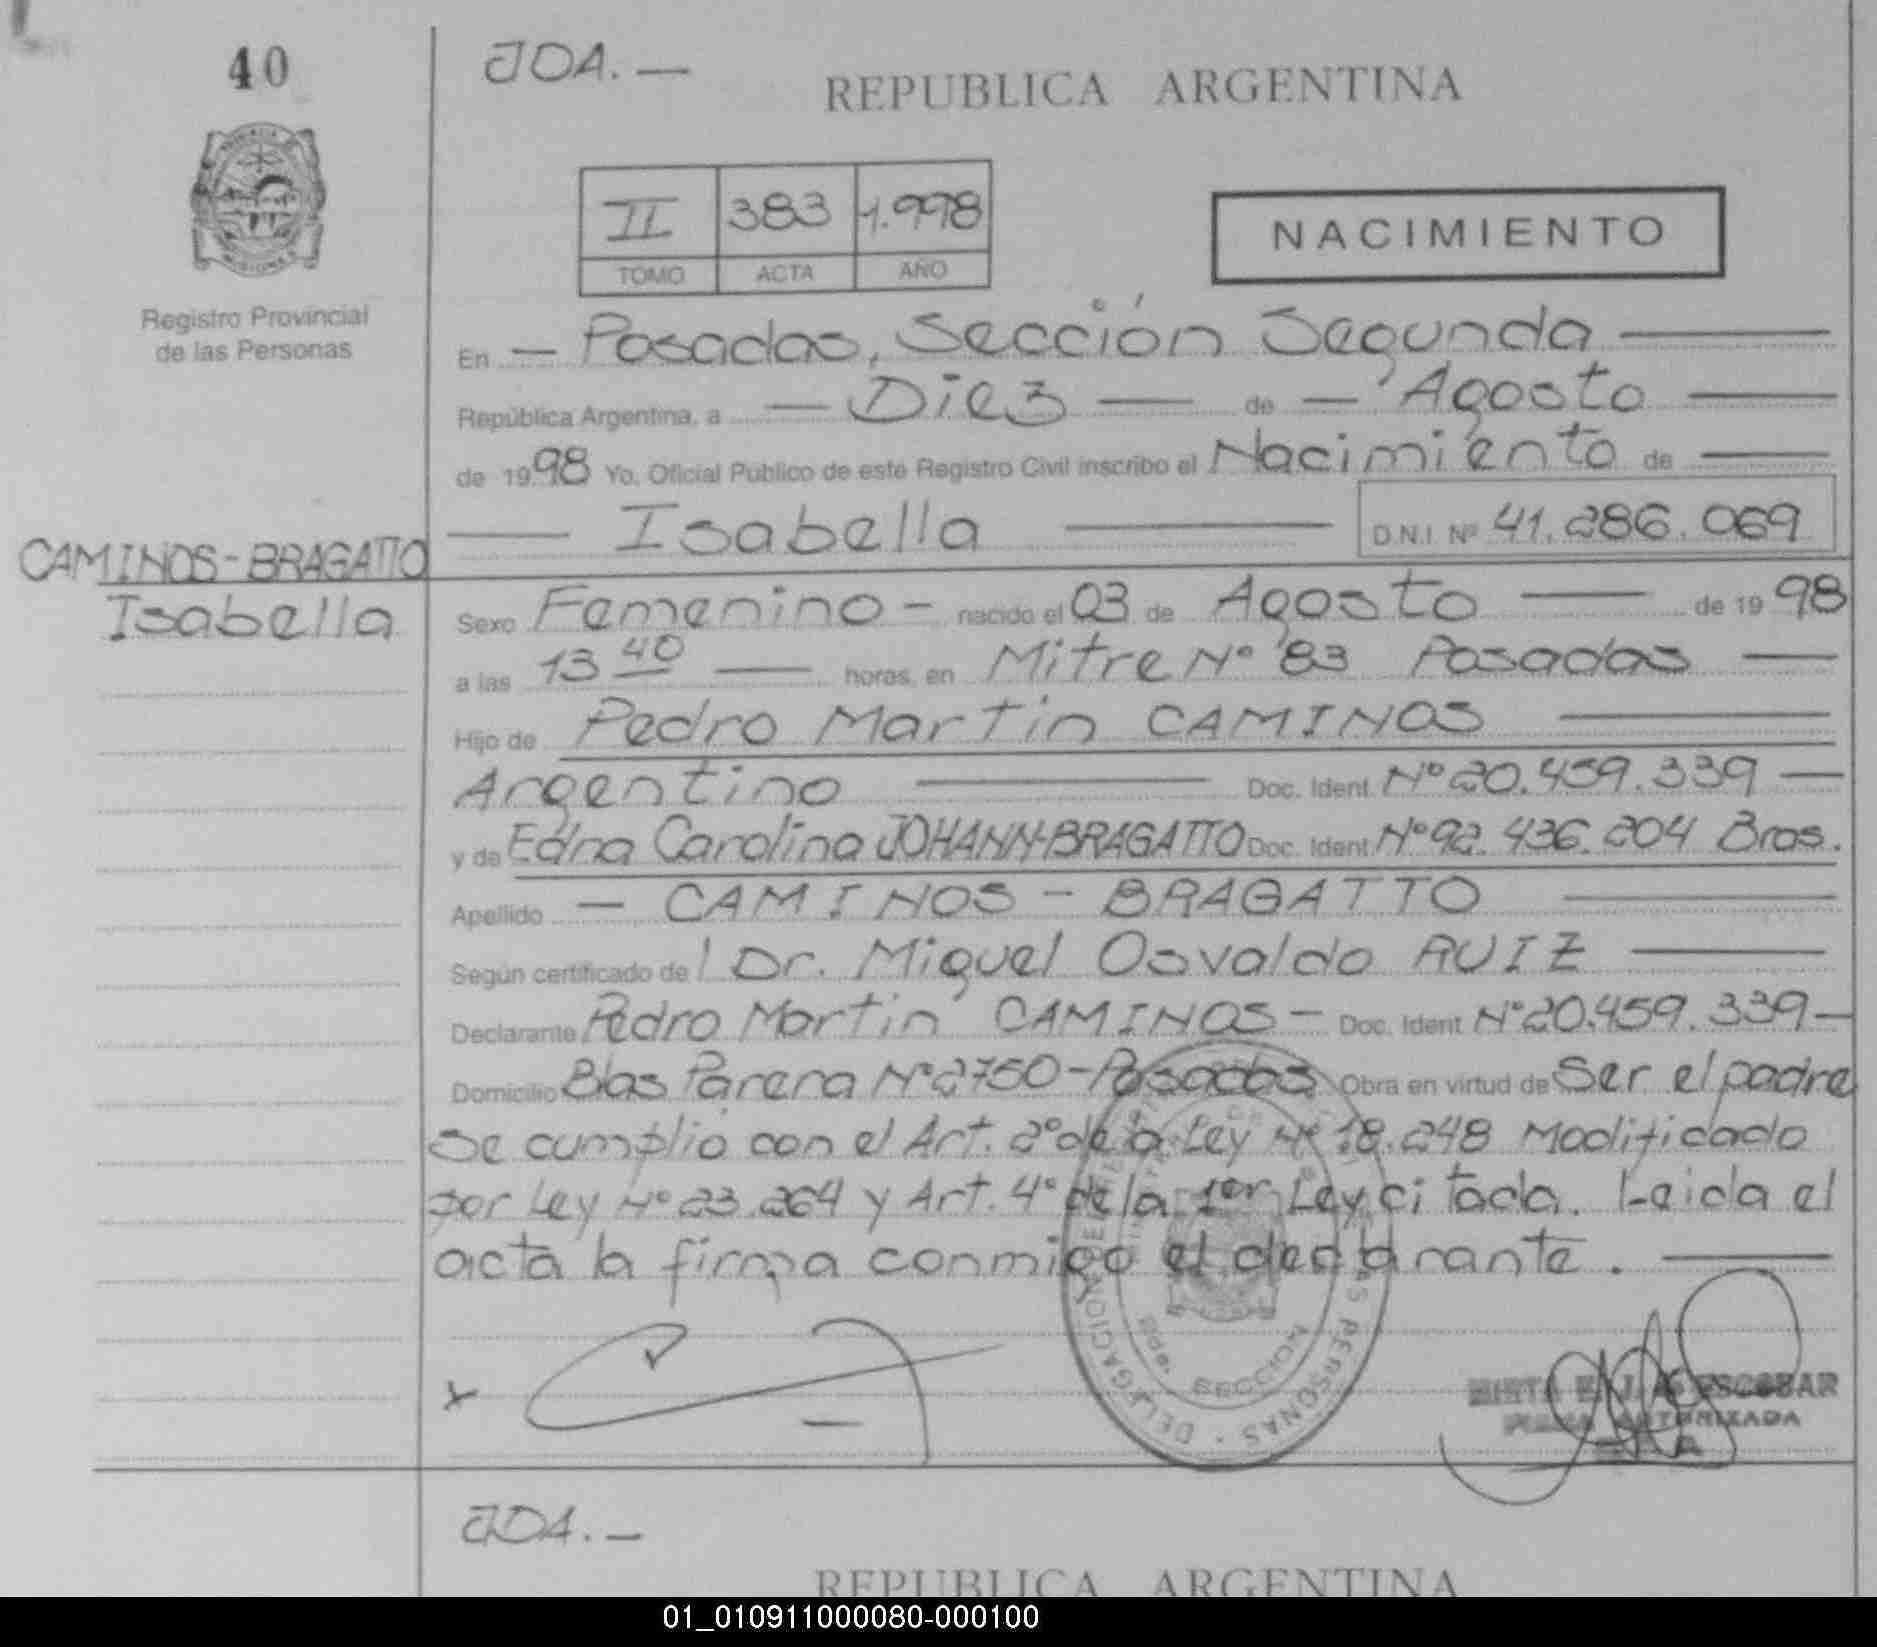 40
JOA.—
REPUBLICA ARGENTINA
II 383 1.998
TOMO ACTA AÑO
NACIMIENTO
Registro Provincial
de las Personas
En — Posadas, Sección Segunda —
República Argentina, a — Diez — de — Agosto —
de 1998 Yo, Oficial Publico de este Registro Civil inscribo el Nacimiento de —
— Isabella — D.N.I. Nº 41.286.069
CAMINOS-BRAGATTO
Isabella
Sexo Femenino — nacido el 03 de Agosto — de 1998
a las 13 40 — horas, en Mitre Nº 83 Posadas —
Hijo de Pedro Martin CAMINOS —
Argentino — Doc. Ident. Nº 20.459.339 —
y de Edna Carolina JOHANN-BRAGATTO Doc. Ident. Nº 92.436.204 Bras.
Apellido — CAMINOS - BRAGATTO —
Según certificado del Dr. Miguel Osvaldo RUIZ —
Declarante Pedro Martin CAMINOS — Doc. Ident Nº 20.459.339 —
Domicilio Blas Parera Nº 2750 - Posadas Obra en virtud de Ser el padre
Se cumplio con el Art. 2º de la Ley Nº 18.248 Modificado
por Ley Nº 23.264 y Art. 4º de la 1er Ley citada. Leida el
acta la firma conmigo el declarante. —
PERSONAS · DELEGACION
SECCION
ESCOBAR
AUTORIZADA
JOA.—
REPUBLICA ARGENTINA
01_010911000080-000100